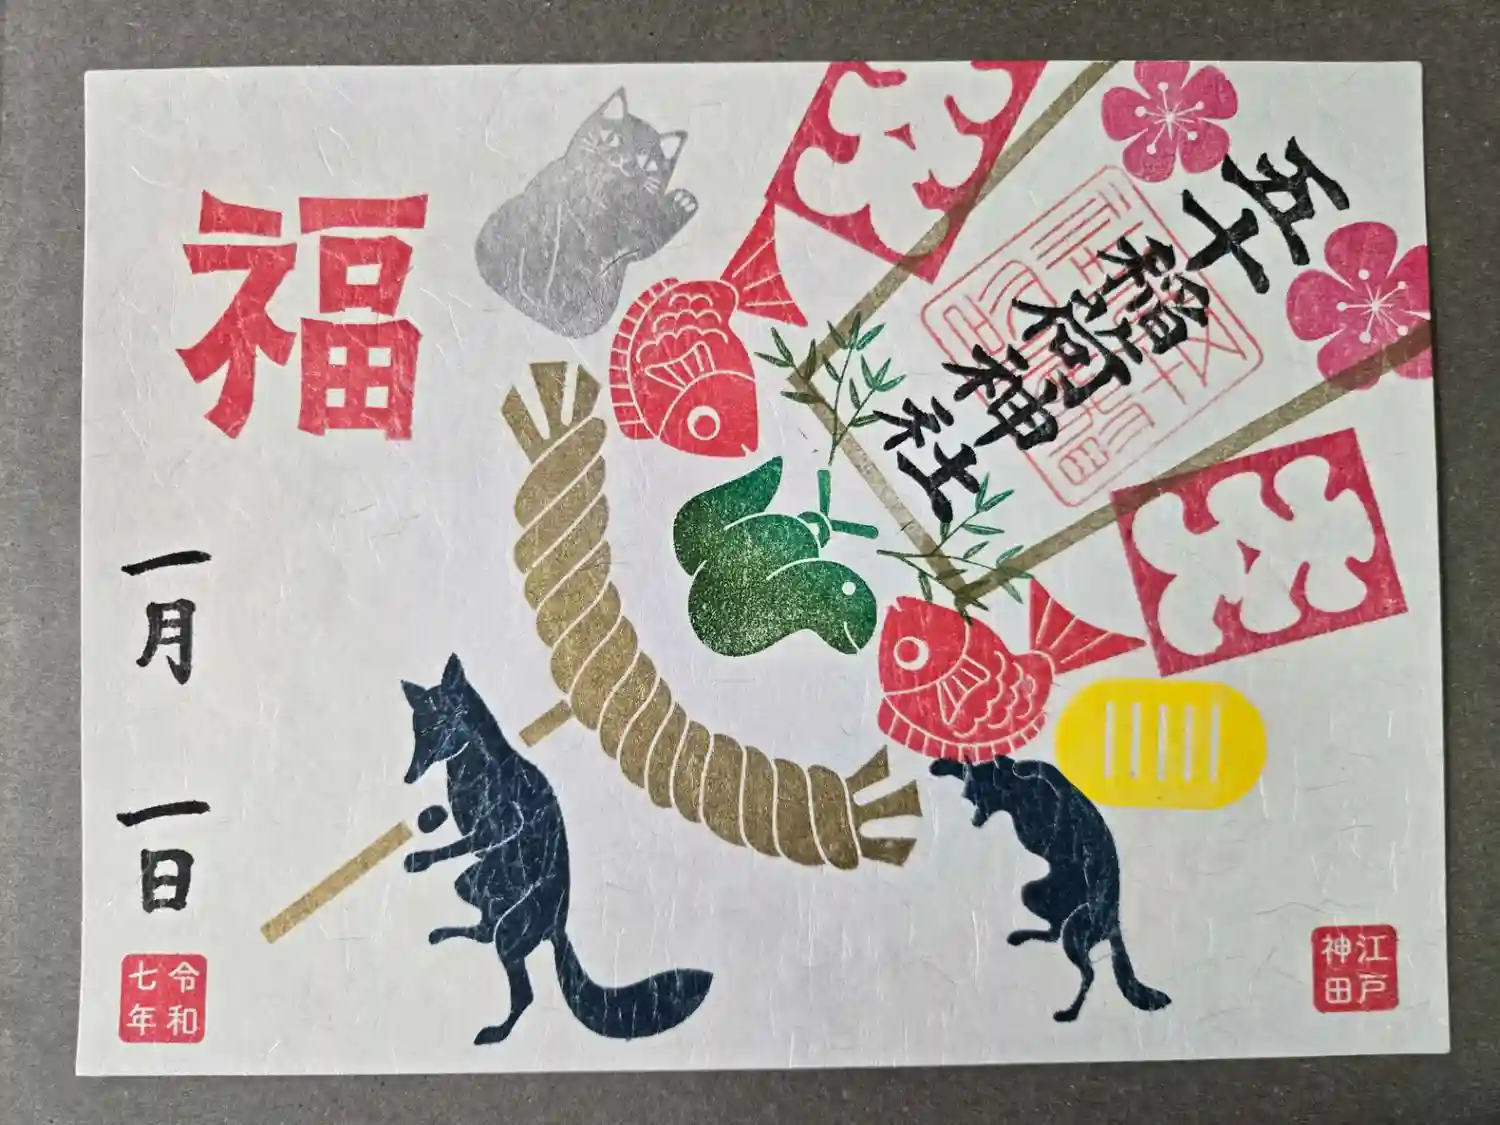 五十
稲荷神社
福
一月
一日
令和
七年
江戸
神田